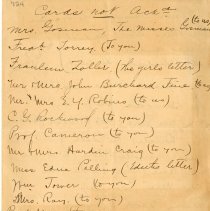 Cards not Acad
Mrs. Gosman, The Misses Gosman (to us)
Treat Torrey (to you)
Fraulein Zoller (the girls letter)
Mr & Mrs. John Burchard
Mr. & Mrs. E. Y. Robins (to us)
C. G. Rockwood (to you)
Prof Cameron (to you)
Mr & Mrs Hardin Craig (to you)
Miss Edna Pelling (Edith's letter)
Tower (to you)
Mrs. Ray. (to you)